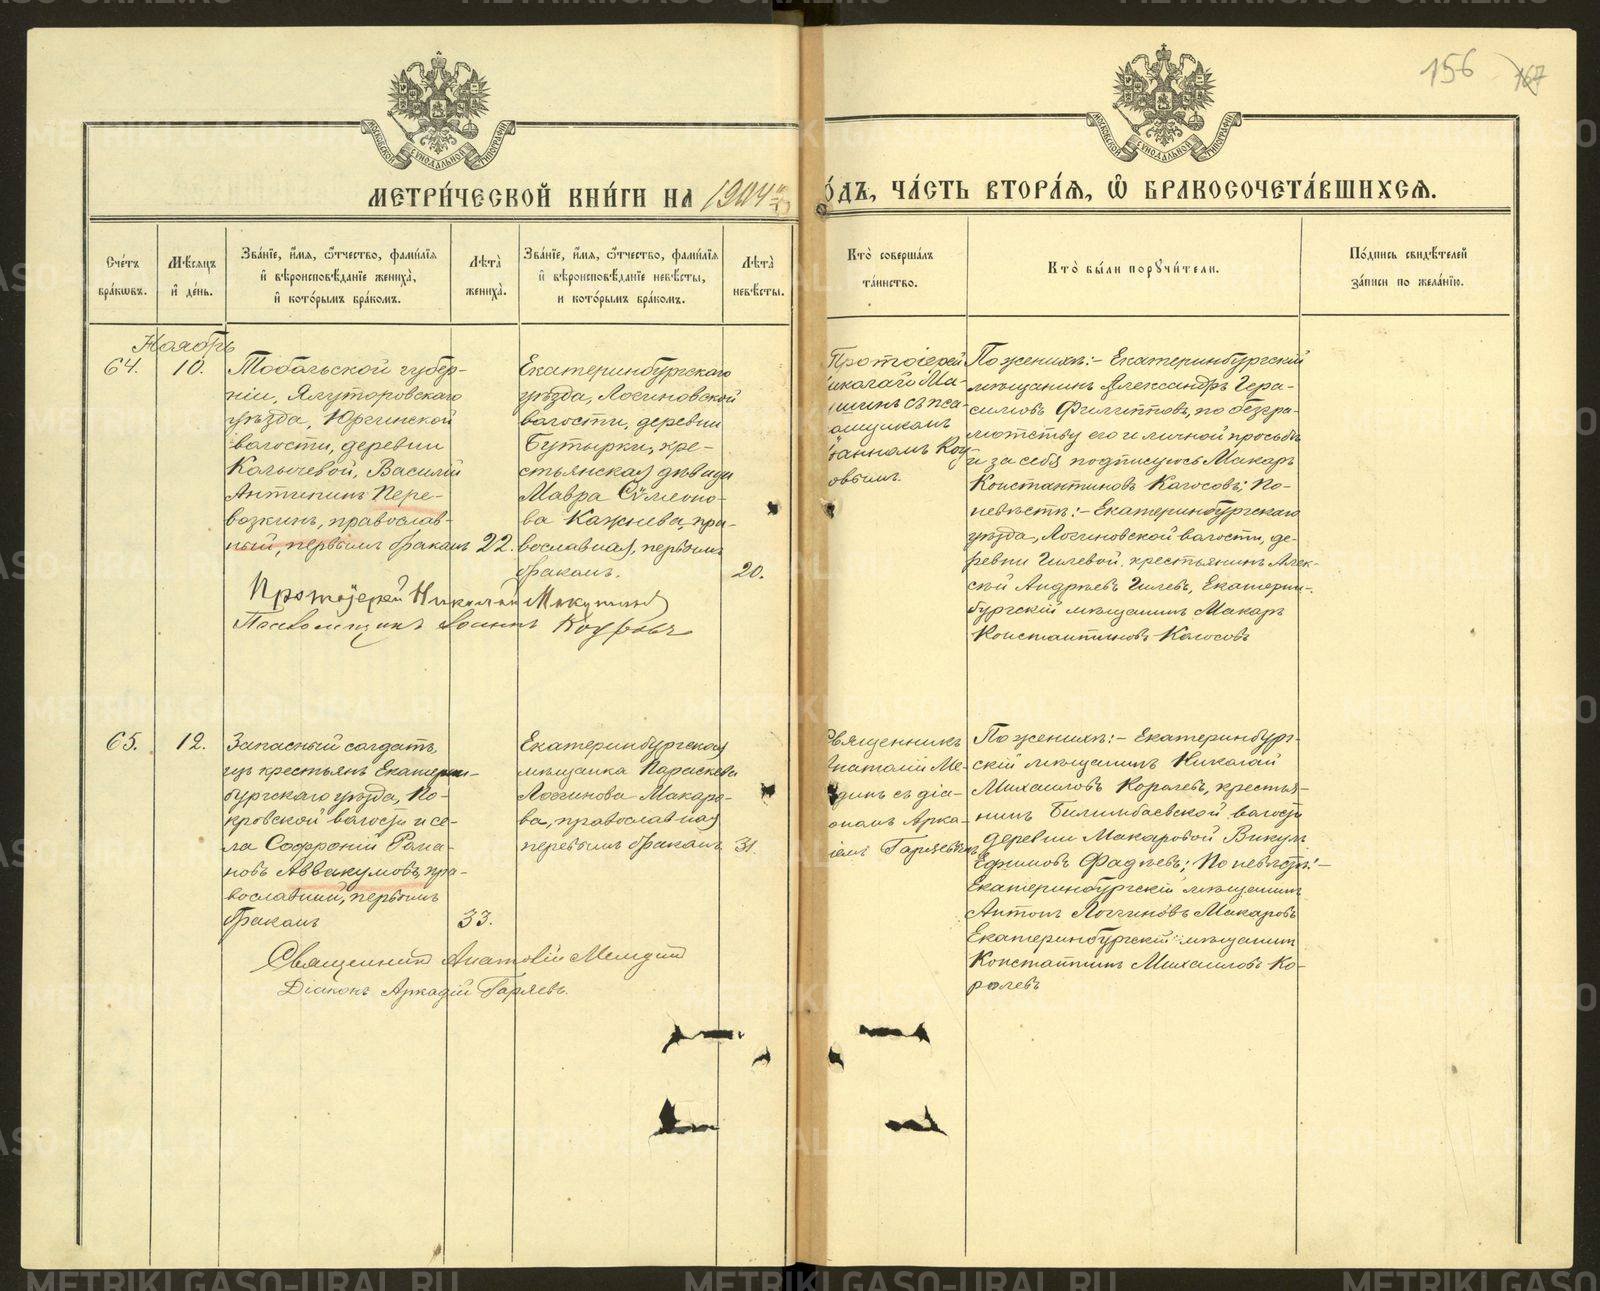 156
167
МОСКОВСКОЙ СѴНОДАЛЬНОЙ ТИПОГРАФІИ
МОСКОВСКОЙ СѴНОДАЛЬНОЙ ТИПОГРАФІИ
МЕТРИ́ЧЕСКОЙ КНИ́ГИ НА 1904
О́ДЪ, ЧА́СТЬ ВТОРА́Я, Ѽ БРАКОСОЧЕТА́ВШИХСЯ.
Сче́тъ бра́кѡвъ.
Мѣ́сяцъ и҆ де́нь.
Зва́нїе, и҆́мя, ѻ҆́тчество, фамилі́я и҆ вѣроисповѣ́данїе жениха̀, и҆ кото́рымъ бра́комъ.
Лѣ́та жениха̀.
Зва́нїе, и҆́мя, ѻ҆́тчество, фамилі́я и҆ вѣроисповѣ́данїе невѣ́сты, и кото́рымъ бра́комъ.
Лѣ́та невѣ́сты.
Кто̀ соверша́лъ та́инство.
Кто̀ бы́ли порꙋчи́тели.
По́дпись свидѣ́телей за́писи по жела́нїю.
Ноябрь
64.
10.
Тобольской губер-
ніи, Ялуторовскаго
уѣзда, Юргинской
волости, деревни
Василій
Антипинъ Пере-
возкинъ, православ-
ный, первымъ бракомъ
22.
Екатеринбургскаго
уѣзда, Логиновской
волости, деревни
Бутырки, кре-
стьянская дѣвица
Мавра Сѵмеоно-
ва Кажнева, пра-
вославная, первымъ
бракомъ.
20.
Протоіерей
иколай Ма-
шинъ съ пса-
омщикомъ
оанномъ Коу
овымъ.
По женихѣ:- Екатеринбургскій
мѣщанинъ Александръ Гера-
симовъ Филипповъ, по безгра-
мотству его и личной просьбѣ
и за себя подписуюсь Макаръ
Константиновъ Колосовъ; По
невѣстѣ:- Екатеринбургскаго
уѣзда, Логиновской волости, де-
ревни Гилевой, крестьянинъ Алек-
сѣй Андреевъ Гилевъ, Екатерин-
бургскій мѣщанинъ Макаръ
Константиновъ Колосовъ
Протоіерей Николай
Псаломщикъ Іоаннъ
65.
12.
Запасный солдатъ,
изъ крестьянъ Екатерин-
бургскаго уѣзда, По-
кровской волости и се-
ла Софроній Рома-
новъ Аввакумовъ, пра-
вославный, первымъ
бракомъ
33.
Екатеринбургская
мѣщанка Параскева
Логгинова Макаро-
ва, православная
первымъ бракомъ
31.
Священникъ
Анатолій Ме-
динъ съ діа-
ономъ Арка-
іемъ Гаряевымъ
По женихѣ:- Екатеринбург-
скій мѣщанинъ Николай
Михаиловъ Королевъ, крестья-
нинъ Билимбаевской волости
деревни Макаровой Викулъ
Ефимовъ Фадѣевъ; По невѣстѣ:-
Екатеринбургскій мѣщанинъ
Антонъ Логгиновъ Макаровъ
Екатеринбургскій мѣщанинъ
Константинъ Михаиловъ Ко-
ролевъ
Священникъ Анатолій
Діаконъ Аркадій Гаряевъ.
METRIKI.GASO-URAL.RU